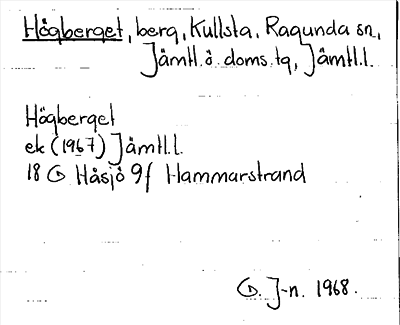 Högberget, berg, Kullsta, Ragunda sn,
Jämtl. ö. doms. tg, Jämtl. l.
Högberget
ek (1967) Jämtl. l.
18 G Håsjö 9f Hammarstrand
G. J-n. 1968.